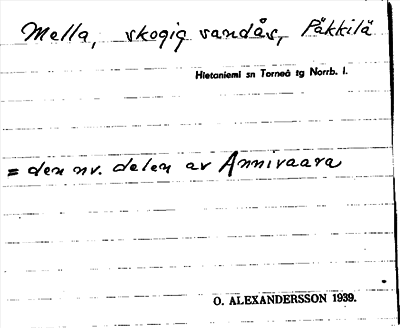 Mella, skogig sandås, Päkkilä
Hietaniemi sn Torneå tg Norrb. l.
= den nv. delen av Annivaara
O. ALEXANDERSSON 1939.